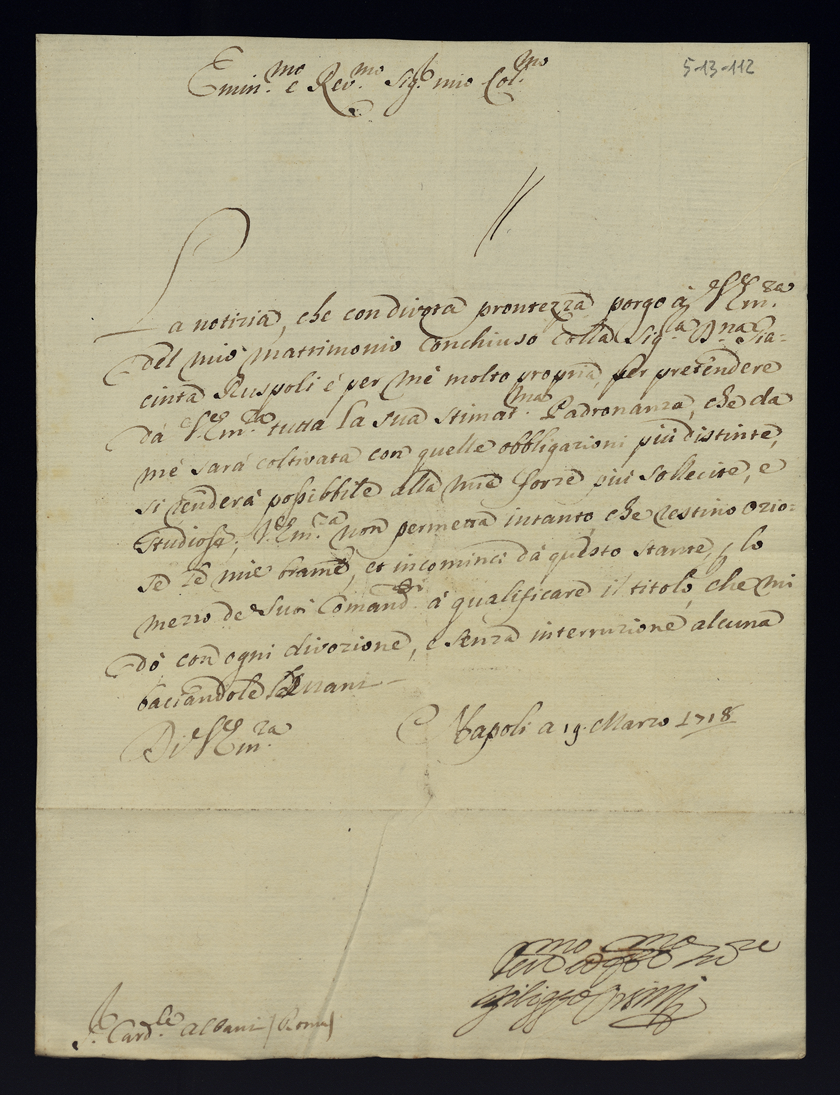 5-13-112
Emin.mo e Rev.mo Sig.r mio Col.mo
La notizia, che con divota prontezza porgo à V. Em.za
del mio matrimonio conchiuso colla Sig.a D.na Gia=
cinta Ruspoli è per mè molto propria, per pretendere
dà V. Em.za tutta la sua stimat.ma Padronanza, che da
mè sarà coltivata con quelle obbligazioni più distinte,
si renderà possibbile alla mie forze più sollecite, e
studiose, V. Em.za non permetta intanto, che restino ozio=
se le mie brame, et incominci dà questo stante, p lo
mezzo de Suoi Comand.i à qualificare il titolo, che mi
dò con ogni divozione, e senza interruzione alcuna
baciandole le mani
Di V. Em.za Napoli a 19. Marzo 1718
Filippo Orsini
S.r Card.le Albani (Roma)